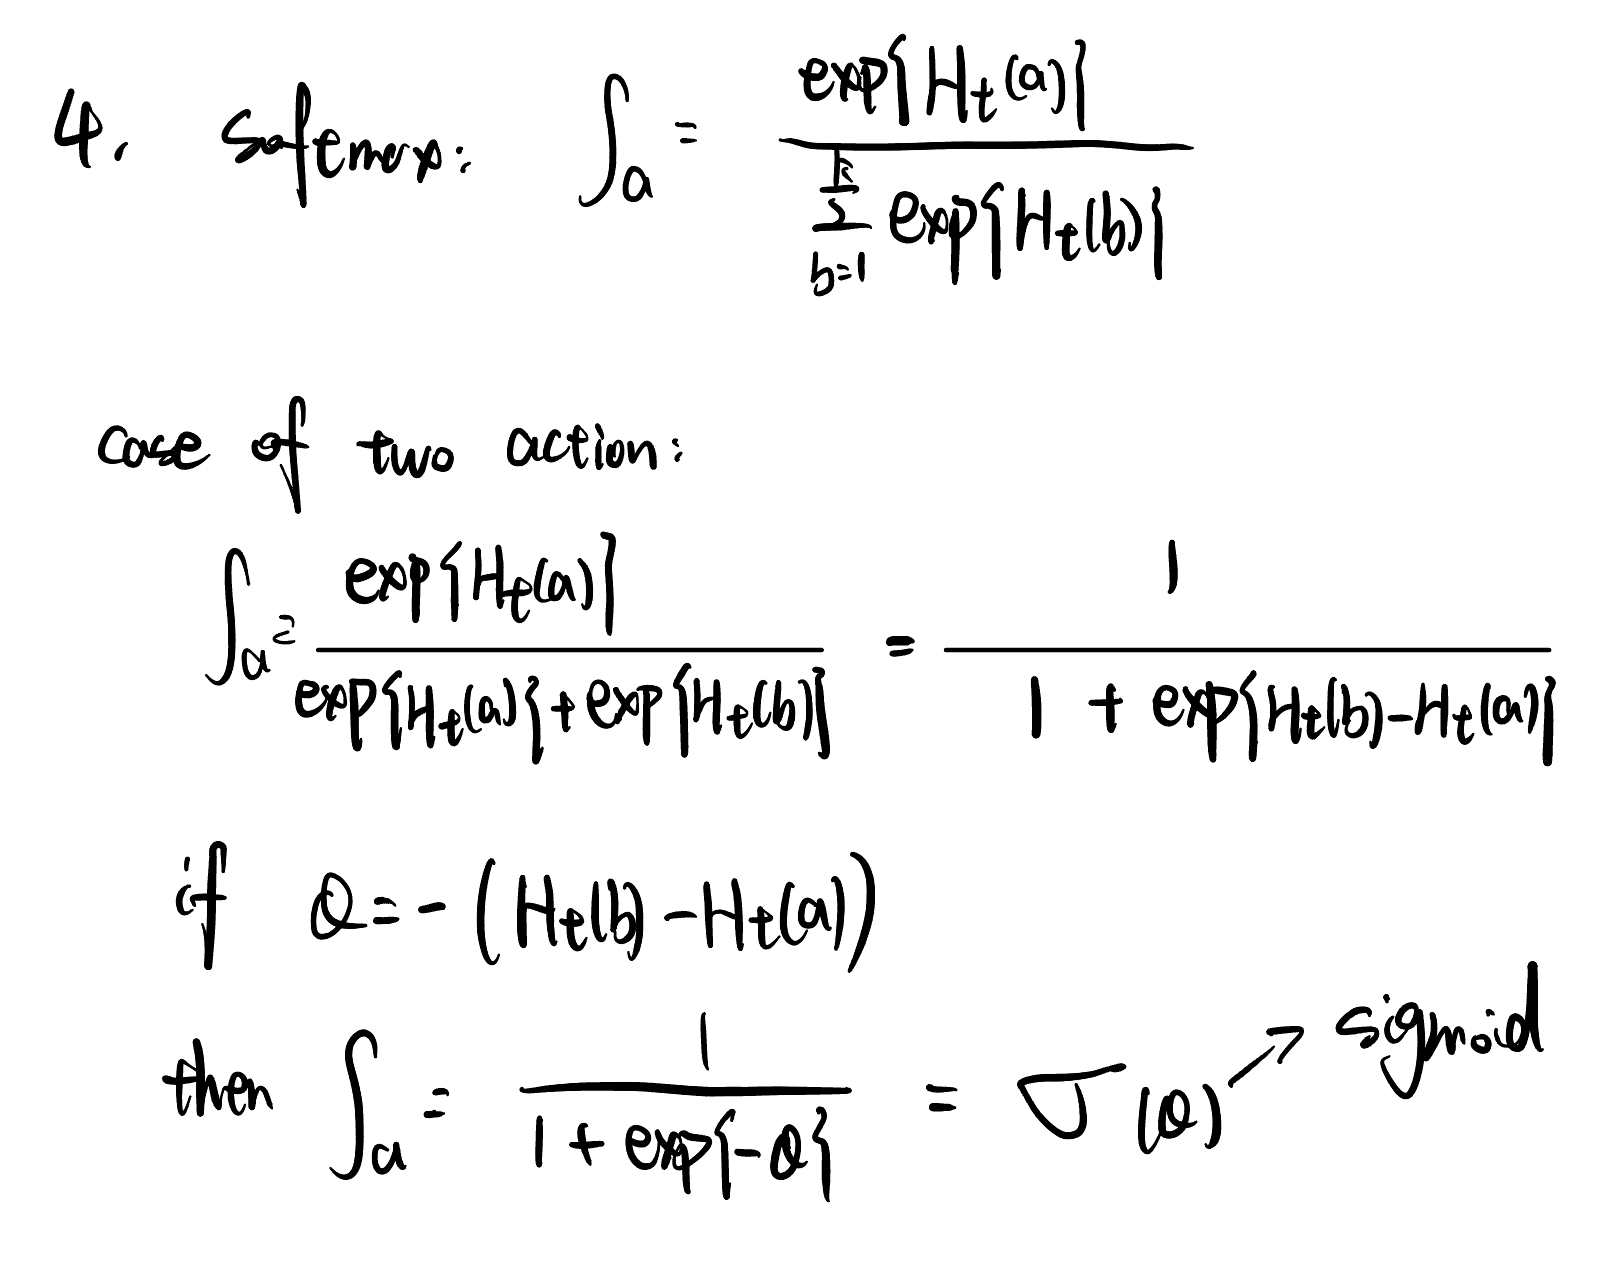 4. softmax: ∫_a = exp{H_t(a)} / Σ_{b=1}^{k} exp{H_t(b)}
case of two action:
∫_a = exp{H_t(a)} / (exp{H_t(a)} + exp{H_t(b)}) = 1 / (1 + exp{H_t(b) - H_t(a)})
if θ = - (H_t(b) - H_t(a))
then ∫_a = 1 / (1 + exp{-θ}) = σ(θ) → sigmoid